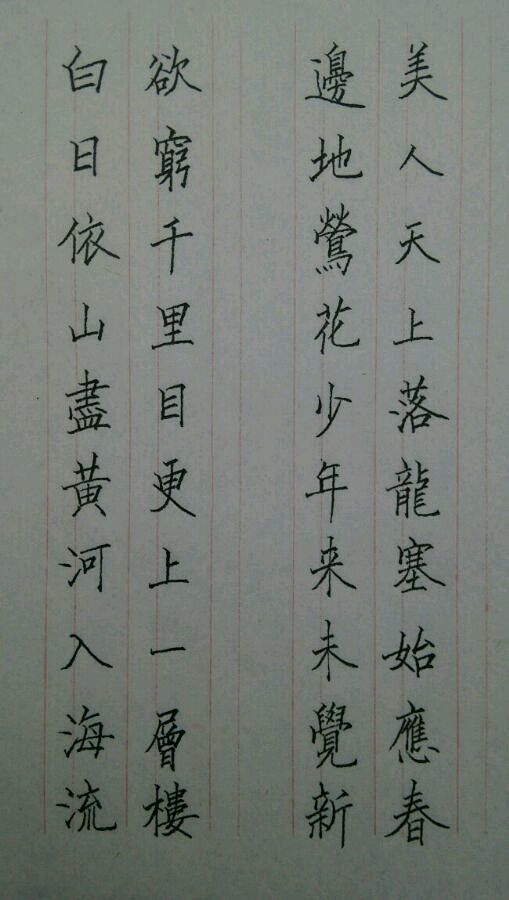 白日依山盡黄河入海流
欲窮千里目更上一層樓
邊地鶯花少年来未覺新
美人天上落龍塞始應春